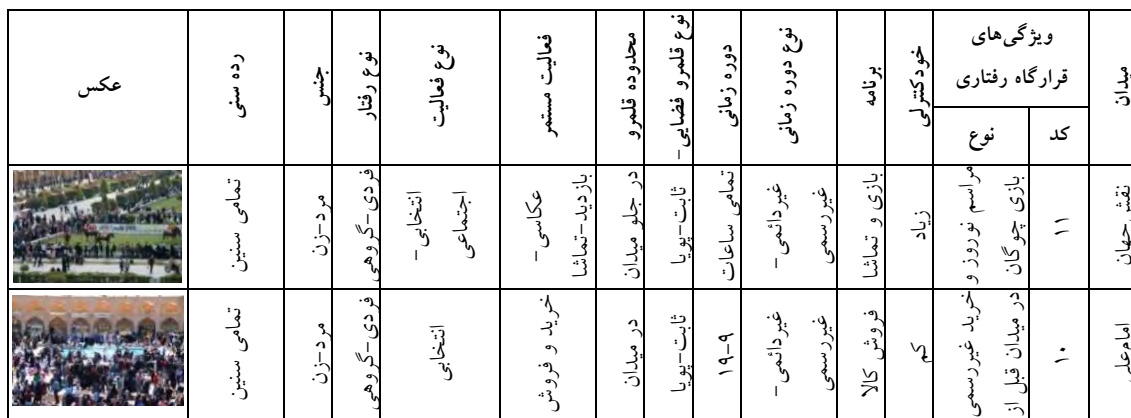 میدان
ویژگی‌های
قرارگاه رفتاری
کد
نوع
خودکنترلی
برنامه
نوع دوره زمانی
دوره زمانی
نوع قلمرو فضایی-
محدوده قلمرو
فعالیت مستمر
نوع فعالیت
نوع رفتار
جنس
رده سنی
عکس
نقش جهان
۱۱
مراسم نوروز و
بازی چوگان
زیاد
بازی و تماشا
غیردائمی-
غیررسمی
تمامی ساعات
ثابت-پویا
در جلو میدان
عکاسی-
بازدید-تماشا
انتخابی-
اجتماعی
فردی-گروهی
مرد-زن
تمامی سنین
امام‌علی
۱۰
خرید غیررسمی
در میدان قبل از
کم
فروش کالا
غیردائمی-
غیررسمی
۹-۱۹
ثابت-پویا
در میدان
خرید و فروش
انتخابی
فردی-گروهی
مرد-زن
تمامی سنین